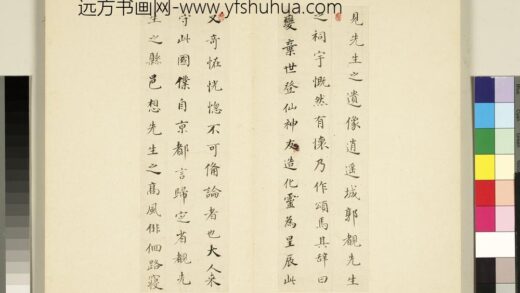 远方书画网-www.yfshuhua.com
見先生之遺像逍遥城郭觀先生
之祠宇慨然有懷乃作頌焉其辭曰
變棄世登仙神友造化靈為星辰此
又奇恠恍惚不可備論者也大人來
守此國僕自京都言歸定省覩先
生之縣邑想先生之髙風俳佪路寝